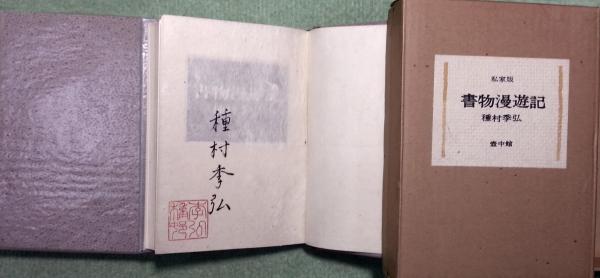 種村季弘
私家版
書物漫遊記
種村季弘
壺中館